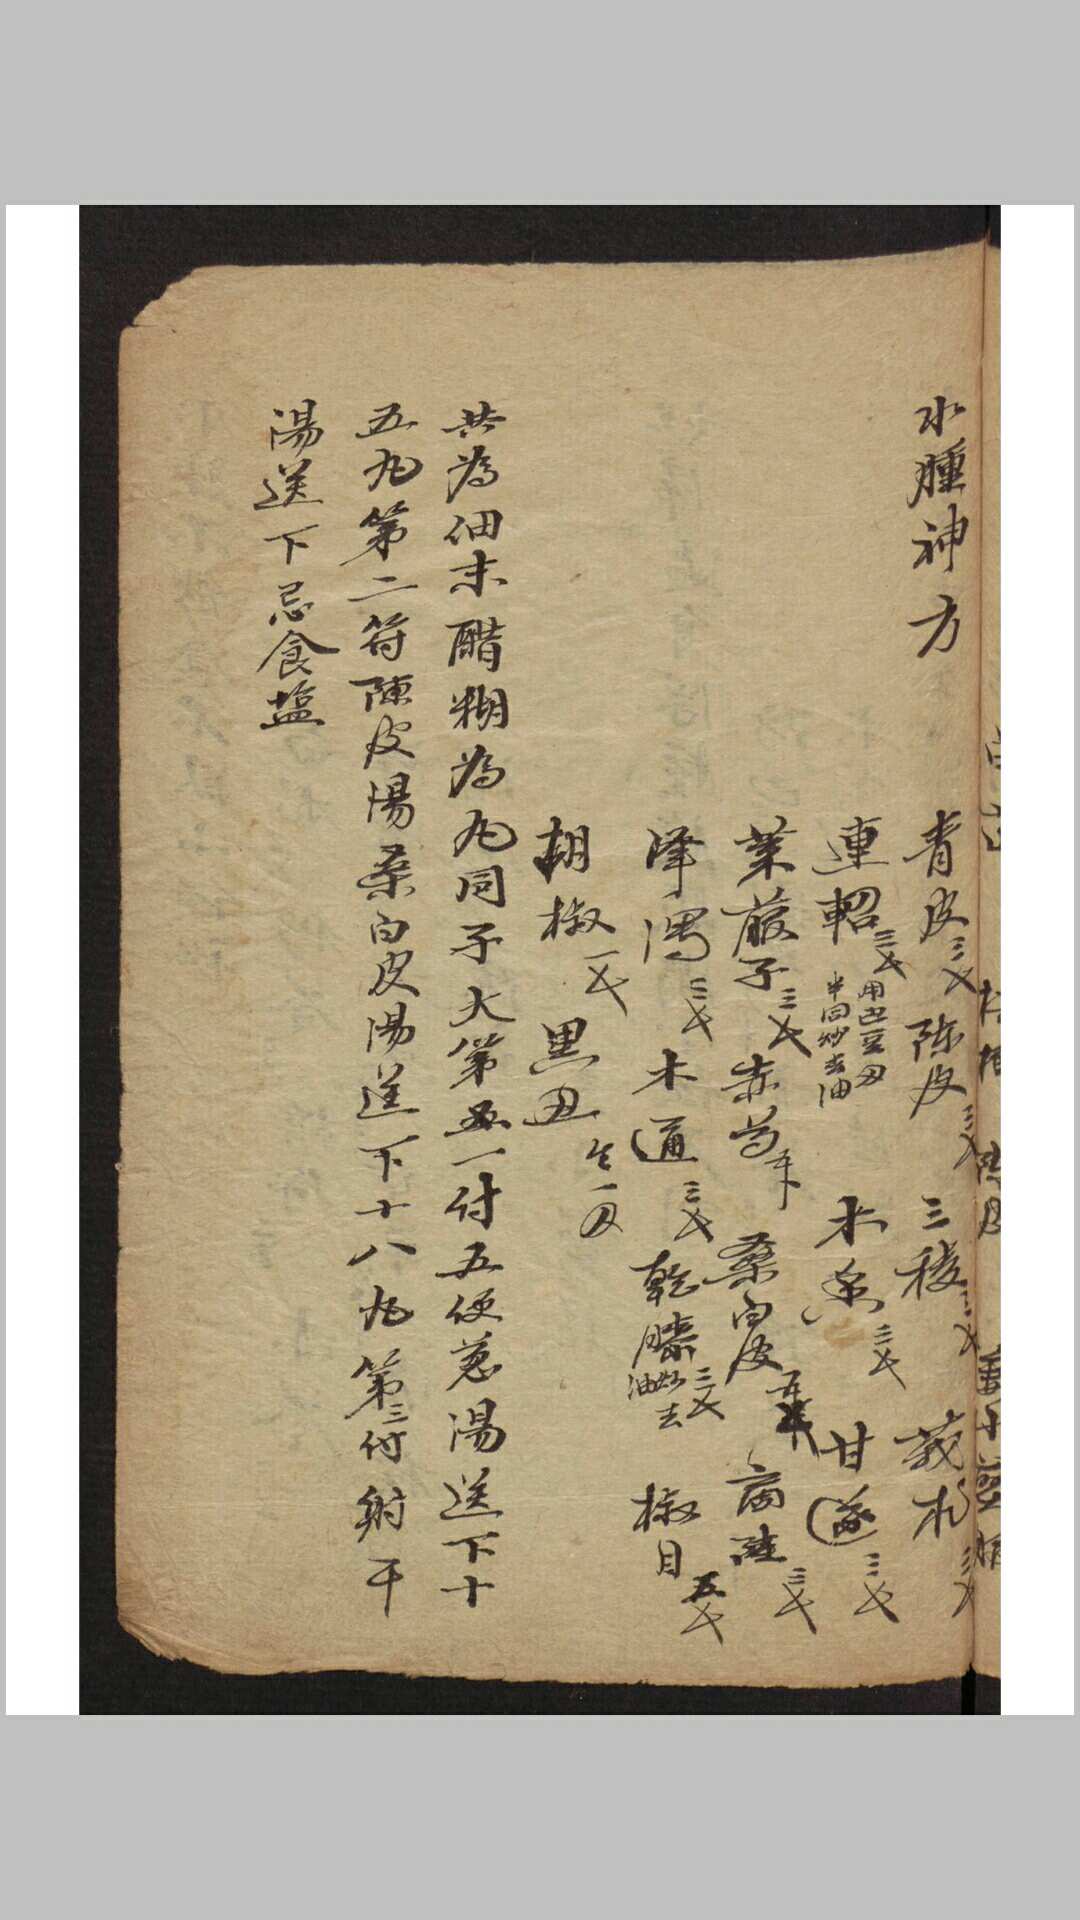 水腫神方
青皮三戈 陈皮三戈 三稜三戈 莪朮三戈
連軺三戈 用巴豆 半同炒去油 木香三戈 甘遂三戈
葶藶子三戈 赤芍 桑白皮五戈 商陸三戈
澤瀉三戈 木通三戈 乾膝三戈 炒去油 椒目五戈
胡椒一戈 黑丑 生一
共為细末醋糊為丸同子大第一付五便葱湯送下十
五丸第二符陳皮湯桑白皮湯送下十八丸第三付射干
湯送下忌食塩